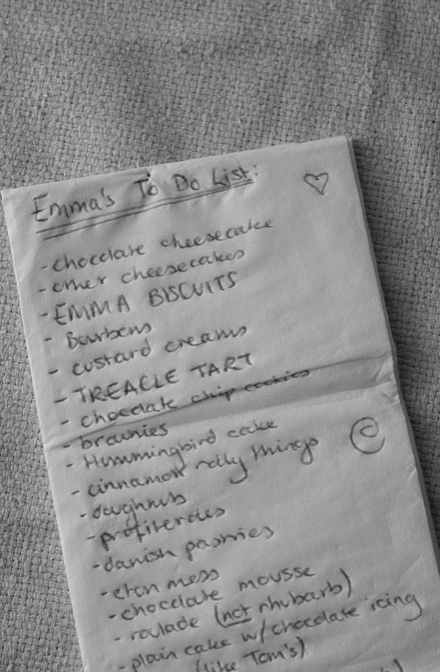 Emma's To Do List:
- chocolate cheesecake
- other cheesecakes
- EMMA BISCUITS
- Bourbons
- custard creams
- TREACLE TART
- chocolate chip cookies
- brownies
- Hummingbird cake
- cinnamon rolly things
- doughnuts
- profiteroles
- danish pastries
- eton mess
- chocolate mousse
- roulade (not rhubarb)
- plain cake w/ chocolate icing
(like Tom's)